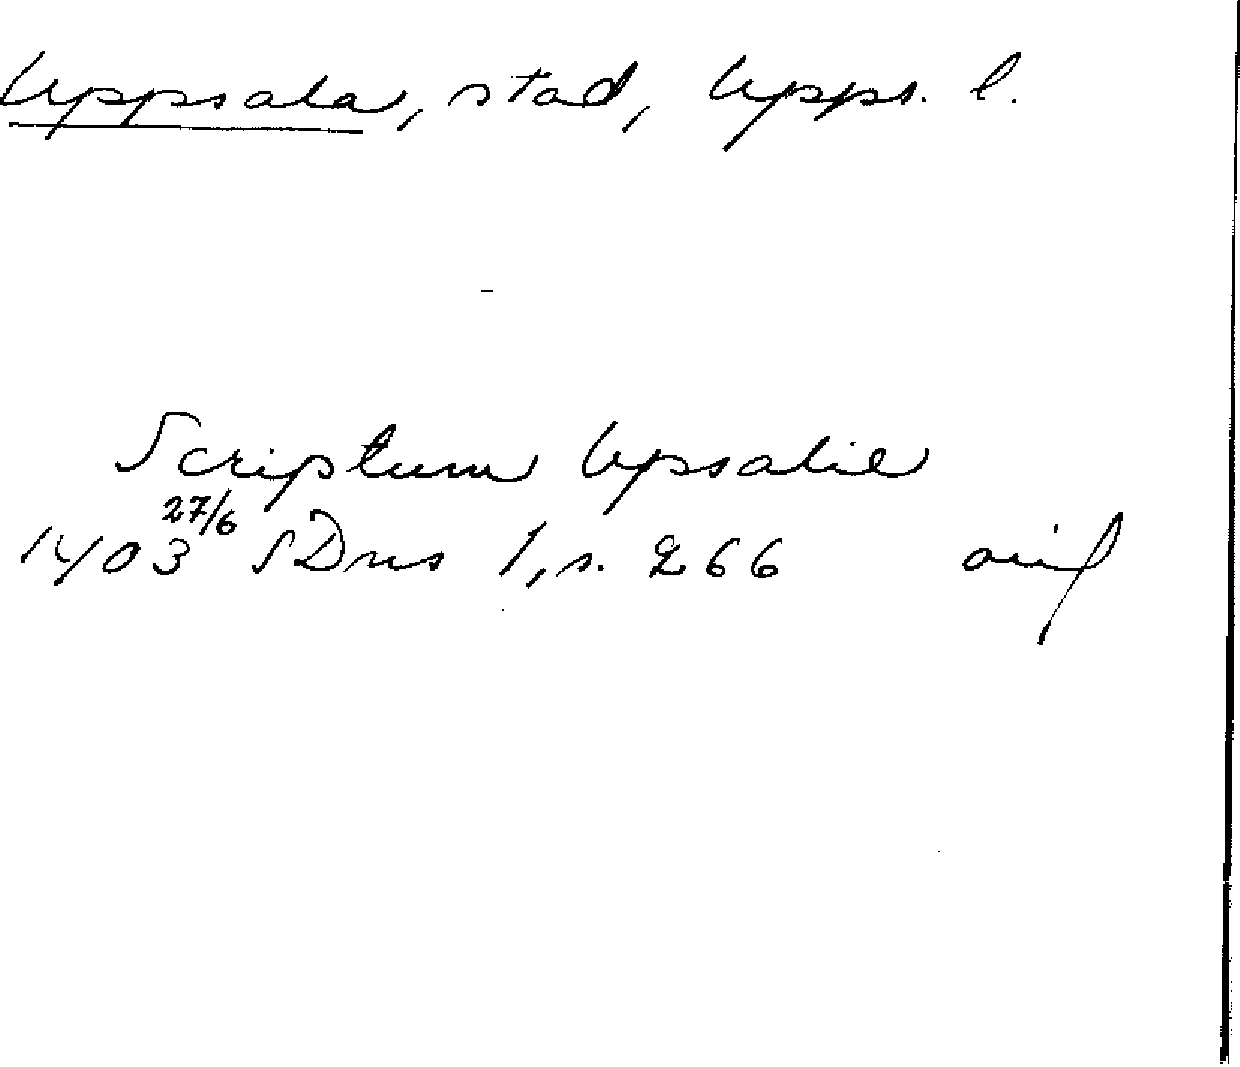 Uppsala, stad, Upps. l.
Scriptum Upsalie
1403 27/6 SDns 1, s. 266 avif